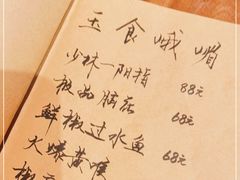 玉食峨嵋
少林一阳指 88元
极品脑花 68元
鲜椒过水鱼 68元
火爆黄喉